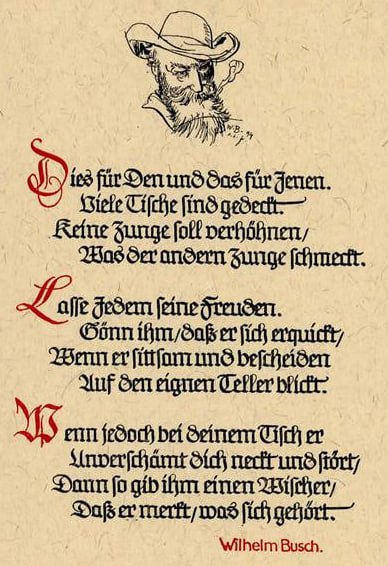 W.B. 94
Dies für Den und das für Jenen.
Viele Tische sind gedeckt.
Keine Zunge soll verhöhnen/
Was der andern Zunge schmeckt.
Lasse Jedem seine Freuden.
Gönn ihm/daß er sich erquickt/
Wenn er sittsam und bescheiden
Auf den eignen Teller blickt.
Wenn jedoch bei deinem Tisch er
Unverschämt dich neckt und stört/
Dann so gib ihm einen Wischer/
Daß er merkt/was sich gehört.
Wilhelm Busch.